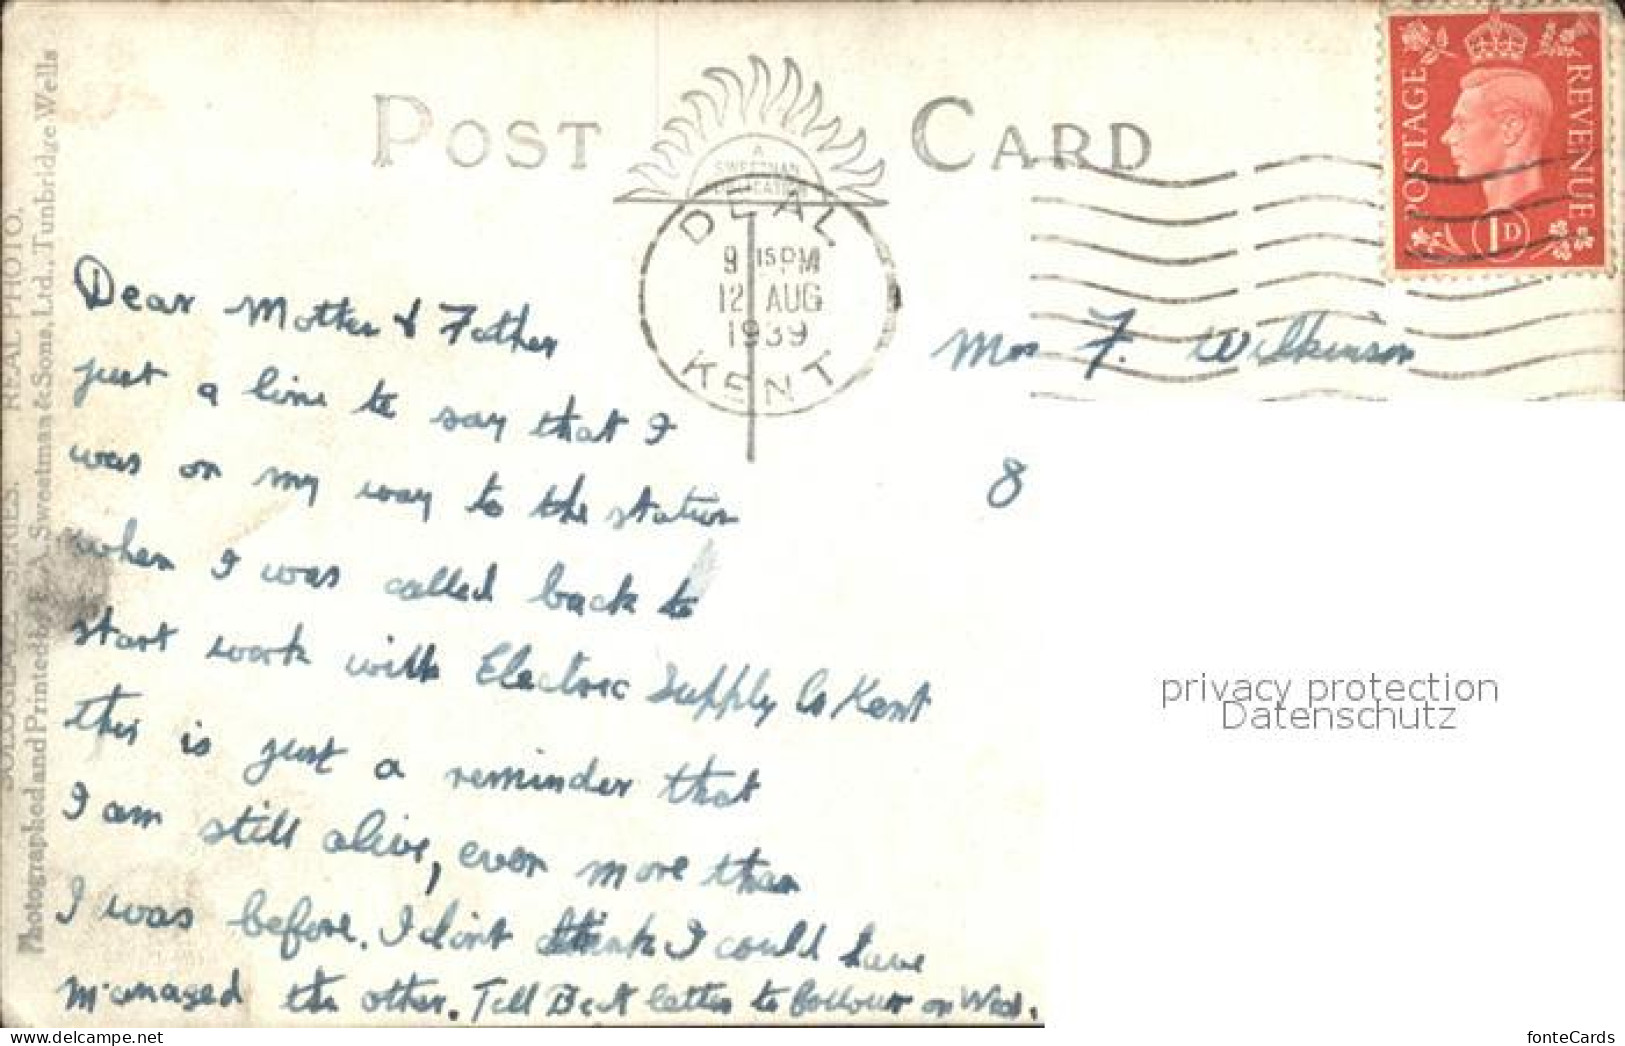 POST CARD
A SWEETMAN PUBLICATION
DEAL
9 15 PM
12 AUG
1939
KENT
POSTAGE REVENUE
1D
Dear Mother & Father
just a line to say that I
was on my way to the station
when I was called back to
start work with Electric Supply Co Kent
this is just a reminder that
I am still alive, even more than
I was before. I don't think I could have
managed the other. Tell Bert letter to follow on Wed.
Mrs F. Wilkinson
8
SOLOGLAZE SERIES. REAL PHOTO.
Photographed and Printed by A. Sweetman & Sons, Ltd., Tunbridge Wells
privacy protection
Datenschutz
fonteCards